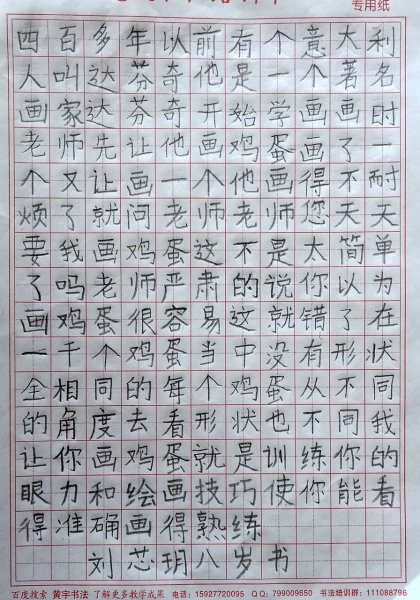 专用纸
四百多年以前有个意大利
人叫达芬奇他是一个著名
画家达芬奇开始学画画时
老师先让他画鸡蛋画了一
个又让画一个他画得不耐
烦了就问老师老师您天天
要我画鸡蛋这不是太简单
了吗老师严肃的说你以为
画鸡蛋很容易这就错了在
一千个鸡蛋当中没有形状
全相同的每个鸡蛋从不同
的角度去看形状也不同我
让你画鸡蛋就是训练你的
眼力和绘画技巧使你能看
得准确画得熟练
刘芯玥八岁书
百度搜索 黄宇书法 了解更多教学成果 电话：15927720095 QQ：799009650 书法培训群：111088796